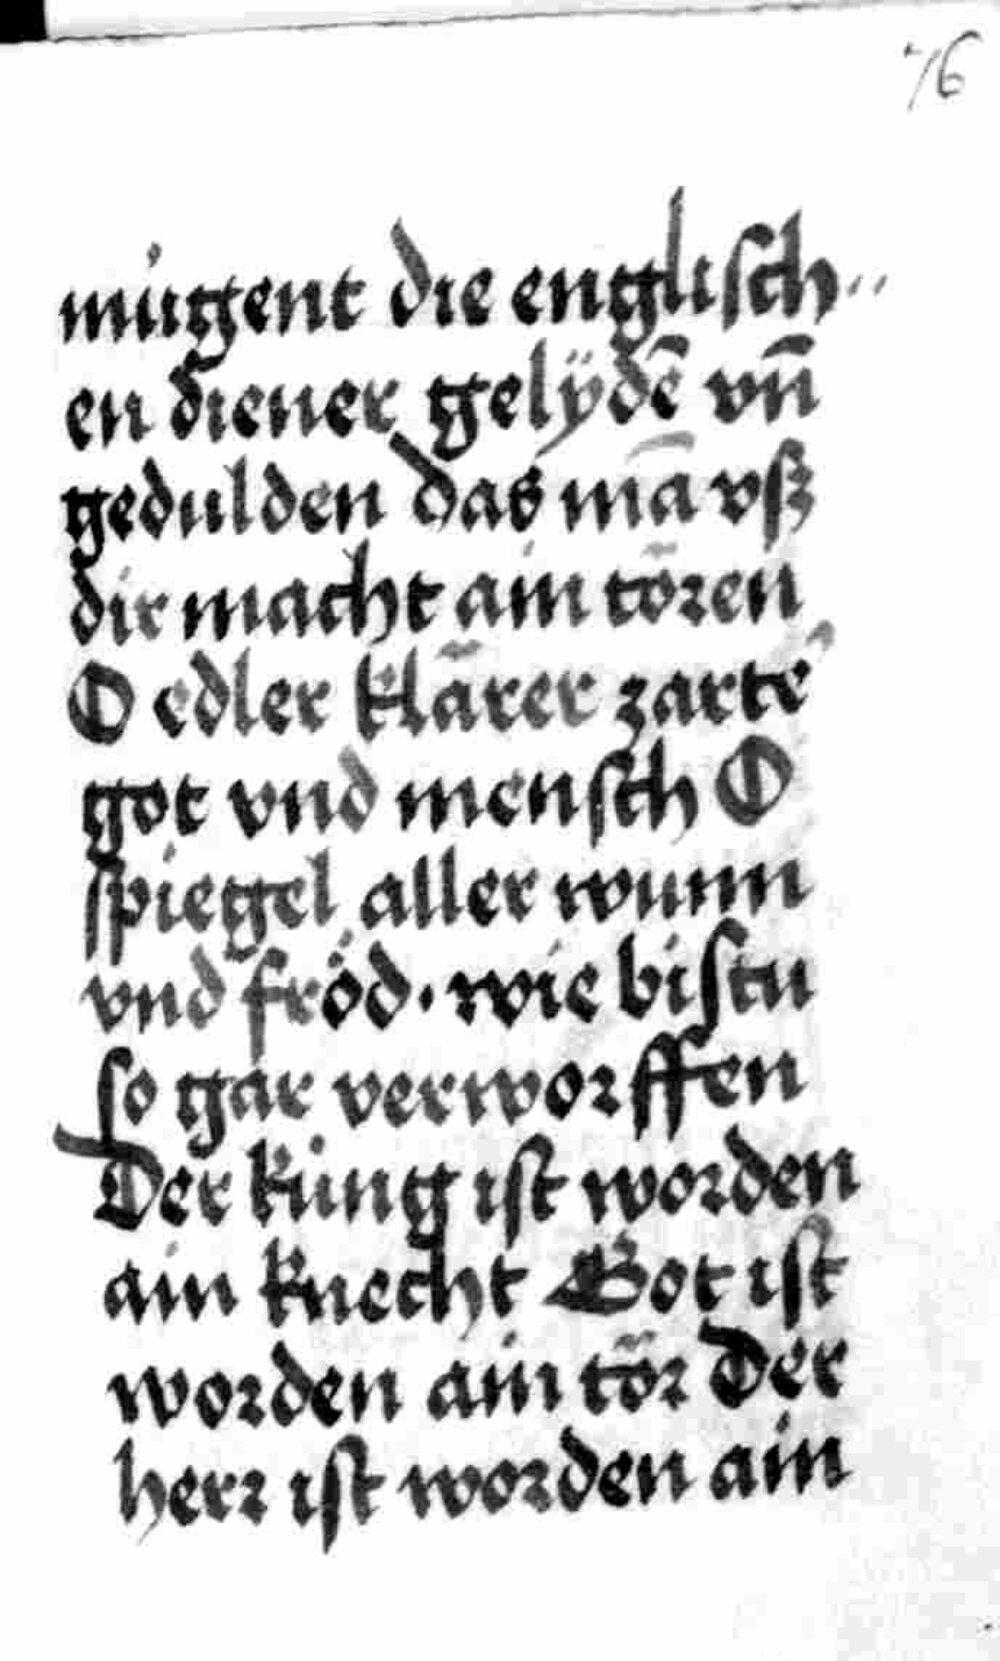 76
mu̇gent die englisch⸗
en diener gelÿdē vn̄
gedulden das mā vsʒ
dir macht ain tören
O edler klärer zarte᷑
got vnd mensch O
spiegel aller wunn
vnd fröd · wie bistu
so gar verworffen
Der ku̇ng ist worden
ain knecht Got ist
worden ain tör Der
herr ist worden ain